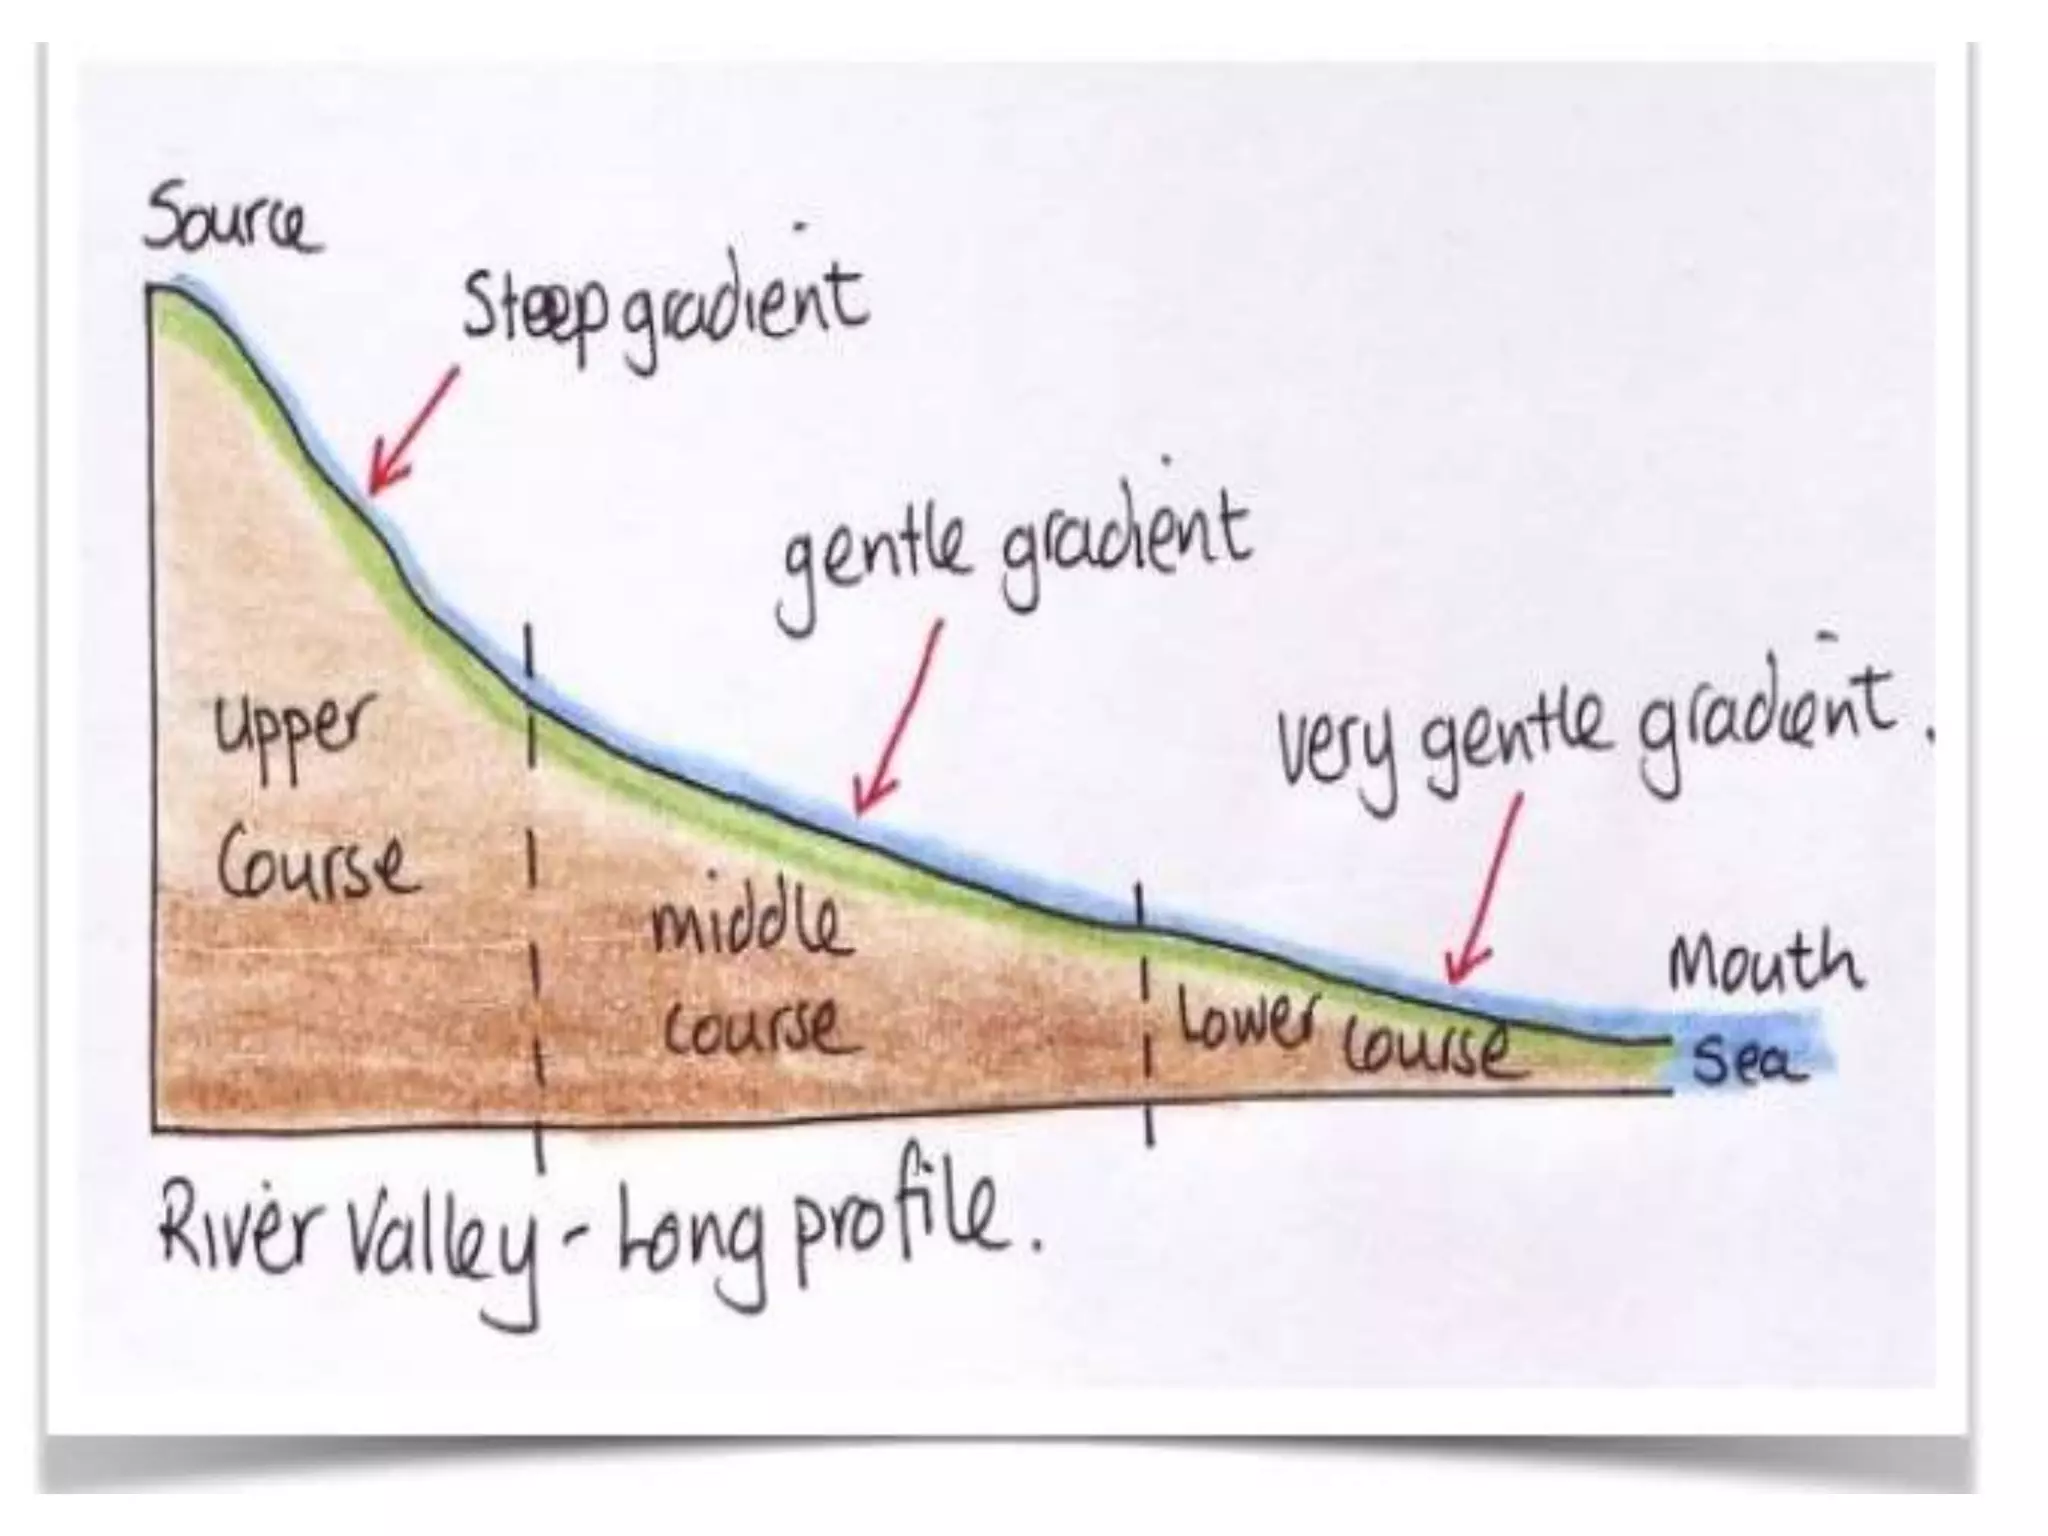 Source
Steep gradient
gentle gradient
very gentle gradient.
Upper
Course
middle
course
Lower course
Mouth
Sea
River Valley - Long profile.